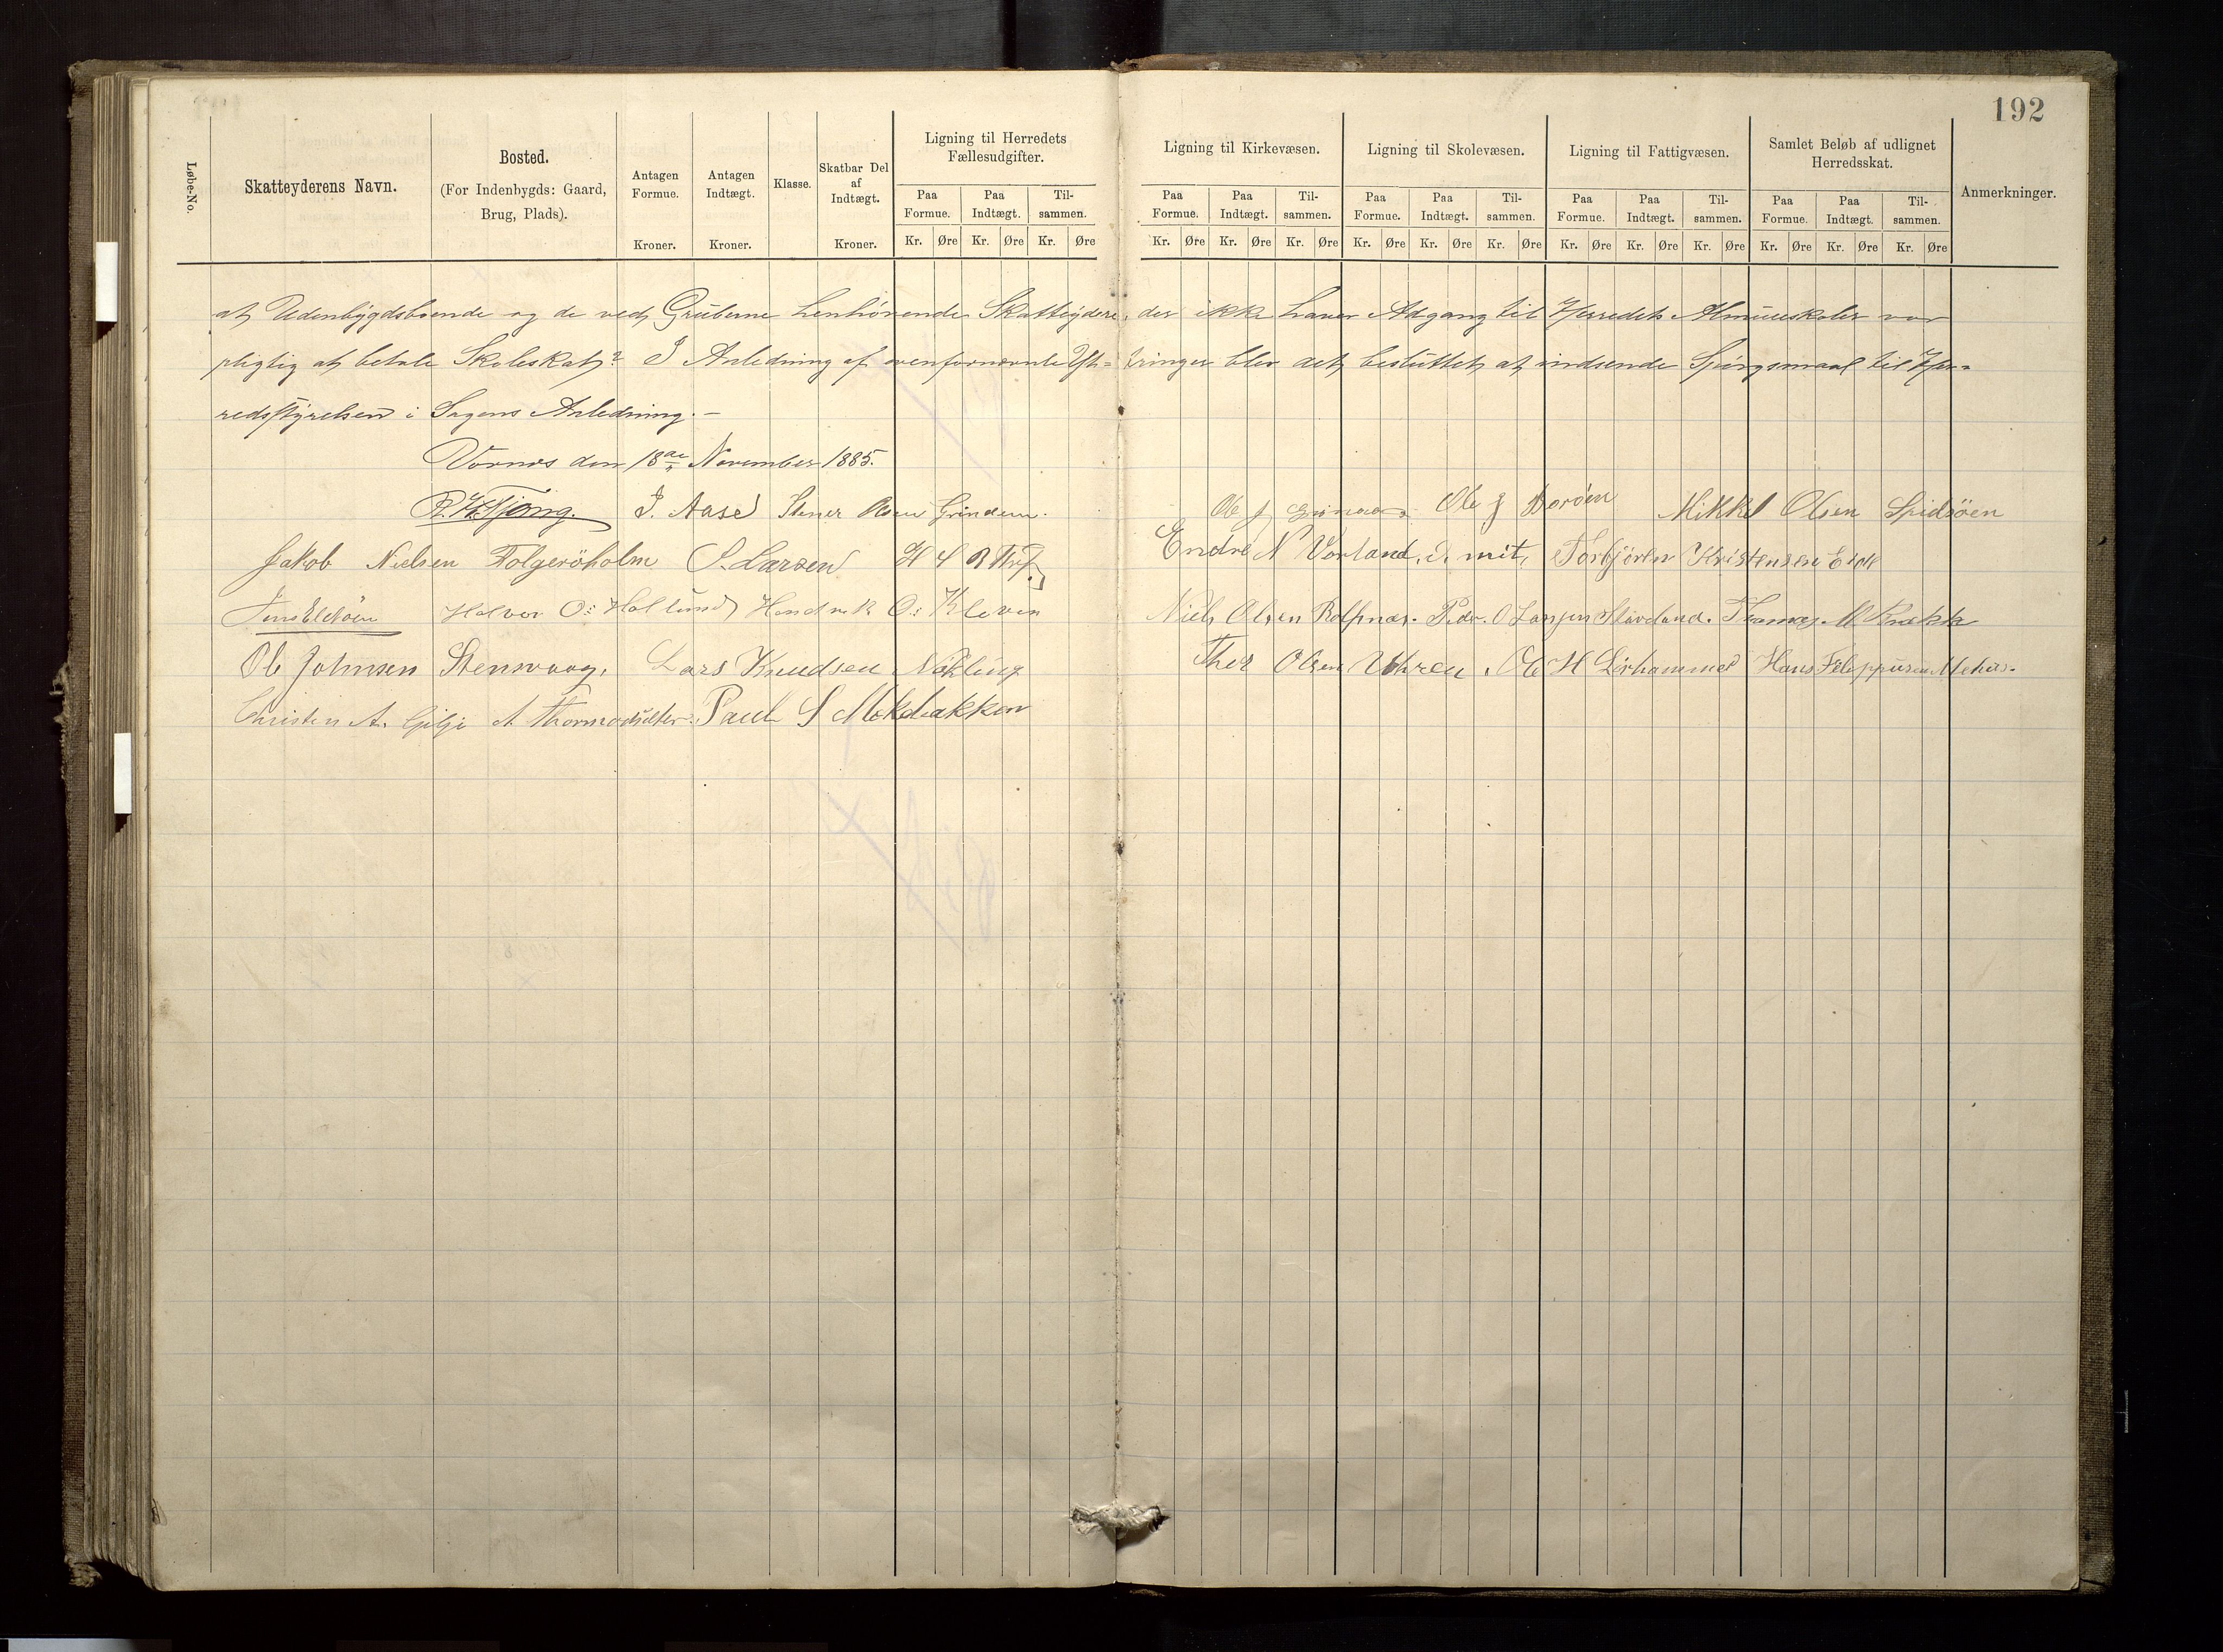 192
Løbe-No.
Skatteyderens Navn.
Bosted.
(For Indenbygds: Gaard,
Brug, Plads).
Antagen
Formue.
Kroner.
Antagen
Indtægt.
Kroner.
Klasse.
Skatbar Del
af
Indtægt.
Kroner.
Ligning til Herredets
Fællesudgifter.
Paa Formue. Paa Indtægt. Til-sammen.
Kr. Øre Kr. Øre Kr. Øre
Ligning til Kirkevæsen.
Paa Formue. Paa Indtægt. Til-sammen.
Kr. Øre Kr. Øre Kr. Øre
Ligning til Skolevæsen.
Paa Formue. Paa Indtægt. Til-sammen.
Kr. Øre Kr. Øre Kr. Øre
Ligning til Fattigvæsen.
Paa Formue. Paa Indtægt. Til-sammen.
Kr. Øre Kr. Øre Kr. Øre
Samlet Beløb af udlignet
Herredsskat.
Paa Formue. Paa Indtægt. Til-sammen.
Kr. Øre Kr. Øre Kr. Øre
Anmerkninger.
at Udenbygdsboende og de ved Gruberne henhørende Skatteydere, der ikke haver Adgang til Herredets Almueskoler var
pligtig at betale Skoleskat? I Anledning af ovenfornævnte blev det besluttet at indsende Spørgsmaal til Her-
redsstyrelsen i Sagens Anledning. –
Vornes den 18de November 1885.
J. Aase Stener Olsen Grindem. Ole J Ole J Borøen Mikkel Olsen Spidsöen
Jakob Nielsen Folgeröholm S. Larsen Endre N Vorland. d. mit, Torbjörn Kristensen Eide
Jens Eldöen Halvor O: Hollund Hendrik O: Kleven Niels Olsen Rolfsnæs. Peder. O Larsen Thomas M
Ole Johnsen Stenvaag, Lars Knudsen Nökling Ther Olsen Uhren. Ole H Lirhammer Hans Filippusen
Christen A. Gilje A Thormodsäter. Paul S Mökebakken